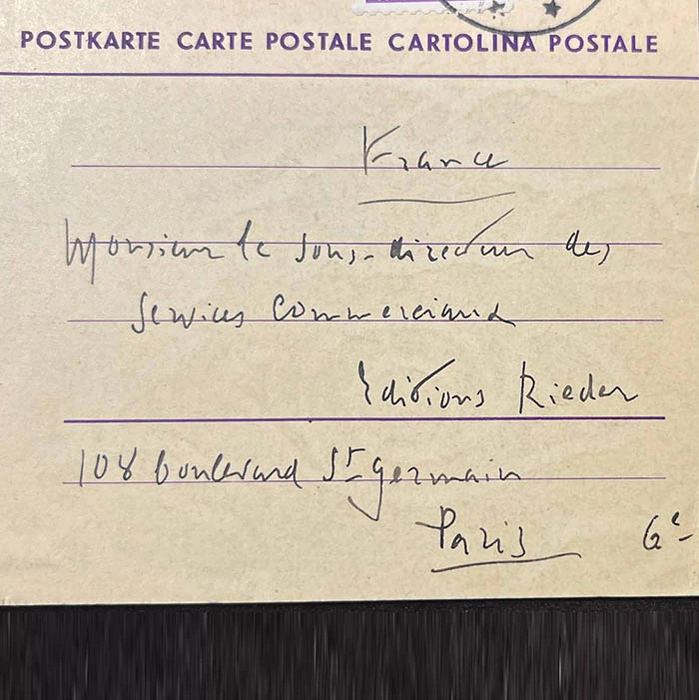 POSTKARTE CARTE POSTALE CARTOLINA POSTALE
France
Monsieur le sous-directeur des
Services Commerciaux
Editions Rieder
108 boulevard St Germain
Paris 6e